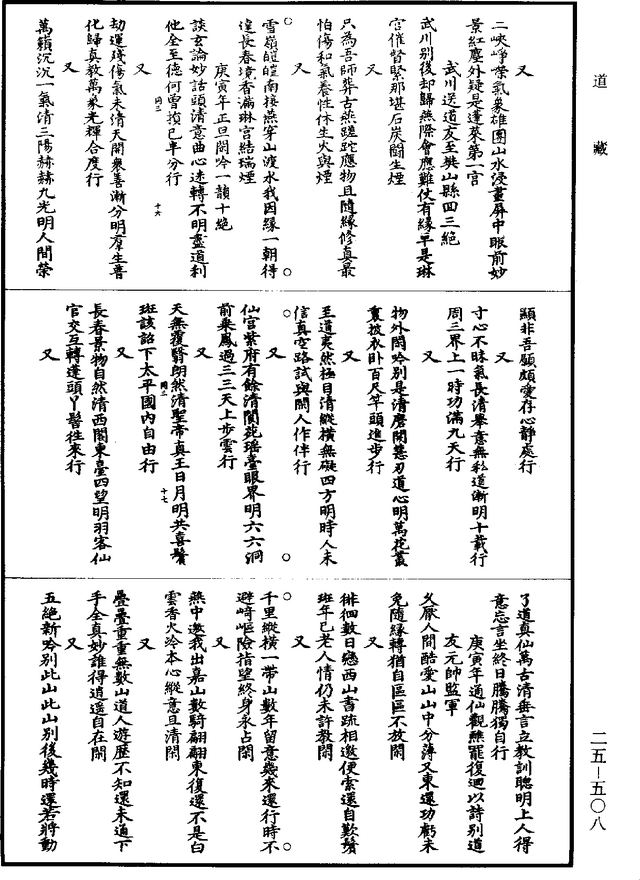 道藏
又
二峽崢嶸氣象雄團山水浸畫屏中眼前妙
景紅塵外疑是蓬萊第一宮
武川送道友至奬山縣四三絕
武川別後却歸燕際會應難仗有緣早是琳
宮催督緊那堪石炭鬪生煙
又
只為吾師葬古燕蹉跎應物且隨緣修真最
怕傷和氣養性休生火與煙
又
雪嶺皚皚南接燕穿山渡水我因緣一朝得
達長春境香滿琳宮結瑞煙
庚寅年正旦閑吟一韻十絕
談玄論妙話頭清意曲心迷轉不明盡道利
他全至德何曾損已半分行
同二 十六
又
劫運殘傷氣未清天開眾善漸分明羣生普
化歸真教萬象光輝合度行
又
萬籟沉沉一氣清三陽赫赫九光明人間榮
顯非吾願頗愛存心靜處行
又
寸心不昧氣長清舉意無私道漸明十載行
周三界上一時功滿九天行
又
物外閑吟別是清磨開慧刃道心明萬花叢
裏披衣卧百尺竿頭進步行
又
至道夷然極目清縱橫無礙四方明時人未
信真空路試與閑人作伴行
又
仙宮紫府有餘清閬苑瑤臺眼界明六六洞
前乘鳳過三三天上步雲行
又
天無覆翳朗然清聖帝真王日月明共喜鬢
班該詔下太平國內自由行
同二 十七
又
長春景物自然清西閣東臺四望明羽客仙
官交互轉蓬頭丫髻往來行
又
了道真仙萬古清無言立教訓聰明上人得
意忘言坐終日騰騰獨自行
庚寅年通仙觀醮罷復迴以詩別道
友元帥監軍
久厭人間酷愛山山中分薄又東還功虧未
免隨緣轉猶自區區不放閑
又
徘徊數日戀西山書疏相邀便索還自歎鬢
班年已老人情仍未許教閑
又
千里縱橫一帶山數年留意幾來還行時不
避﨑嶇險指望終身永占閑
又
燕中邀我出嘉山數騎翩翩東復還不是白
雲香火冷本心縱意且清閑
又
疊疊重重無數山道人遊歷不知還未通下
手全真妙誰得逍遥自在閑
又
五絕新吟別此山此山別後幾時還若將動
二五—五〇八